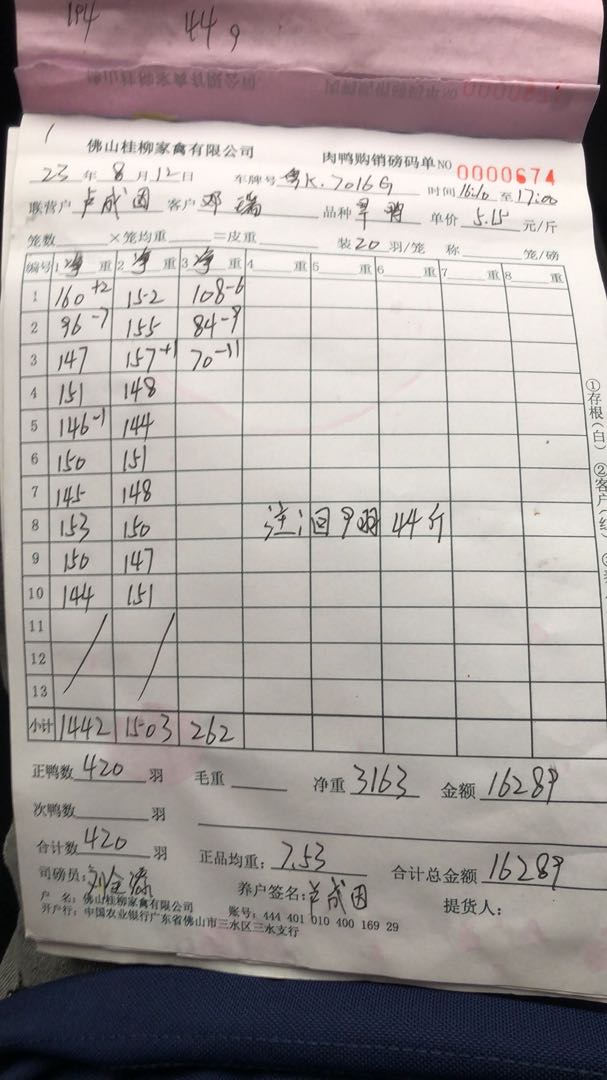 194 44 9
佛山桂柳家禽有限公司 肉鸭购销磅码单 NO 0000674
23 年 8 月 12 日 车牌号 粤K.7016G 时间 16:10 至 17:00
联营户 卢成因 客户 邓瑞 品种 单价 5.15 元/斤
笼数 ×笼均重 =皮重 装 20 羽/笼 称 笼/磅
编号 1 净 重 2 净 重 3 净 重 4 重 5 重 6 重 7 重 8 重
1 160+2 152 108-6
2 96-7 155 84-9
3 147 157+1 70-11
4 151 148
5 146-1 144
6 150 151
7 145 148
8 153 150 注:回 羽 44斤
9 150 147
10 144 151
11
12
13
小计 1442 1503 262
正鸭数 420 羽 毛重 净重 3163 金额 16289
次鸭数 羽
合计数 420 羽 正品均重: 7.53 合计总金额 16289
司磅员: 养户签名: 卢成因 提货人:
户 名: 佛山桂柳家禽有限公司 账号: 444 401 010 400 169 29
开户行: 中国农业银行广东省佛山市三水区三水支行
①存根(白) ②客户(红)